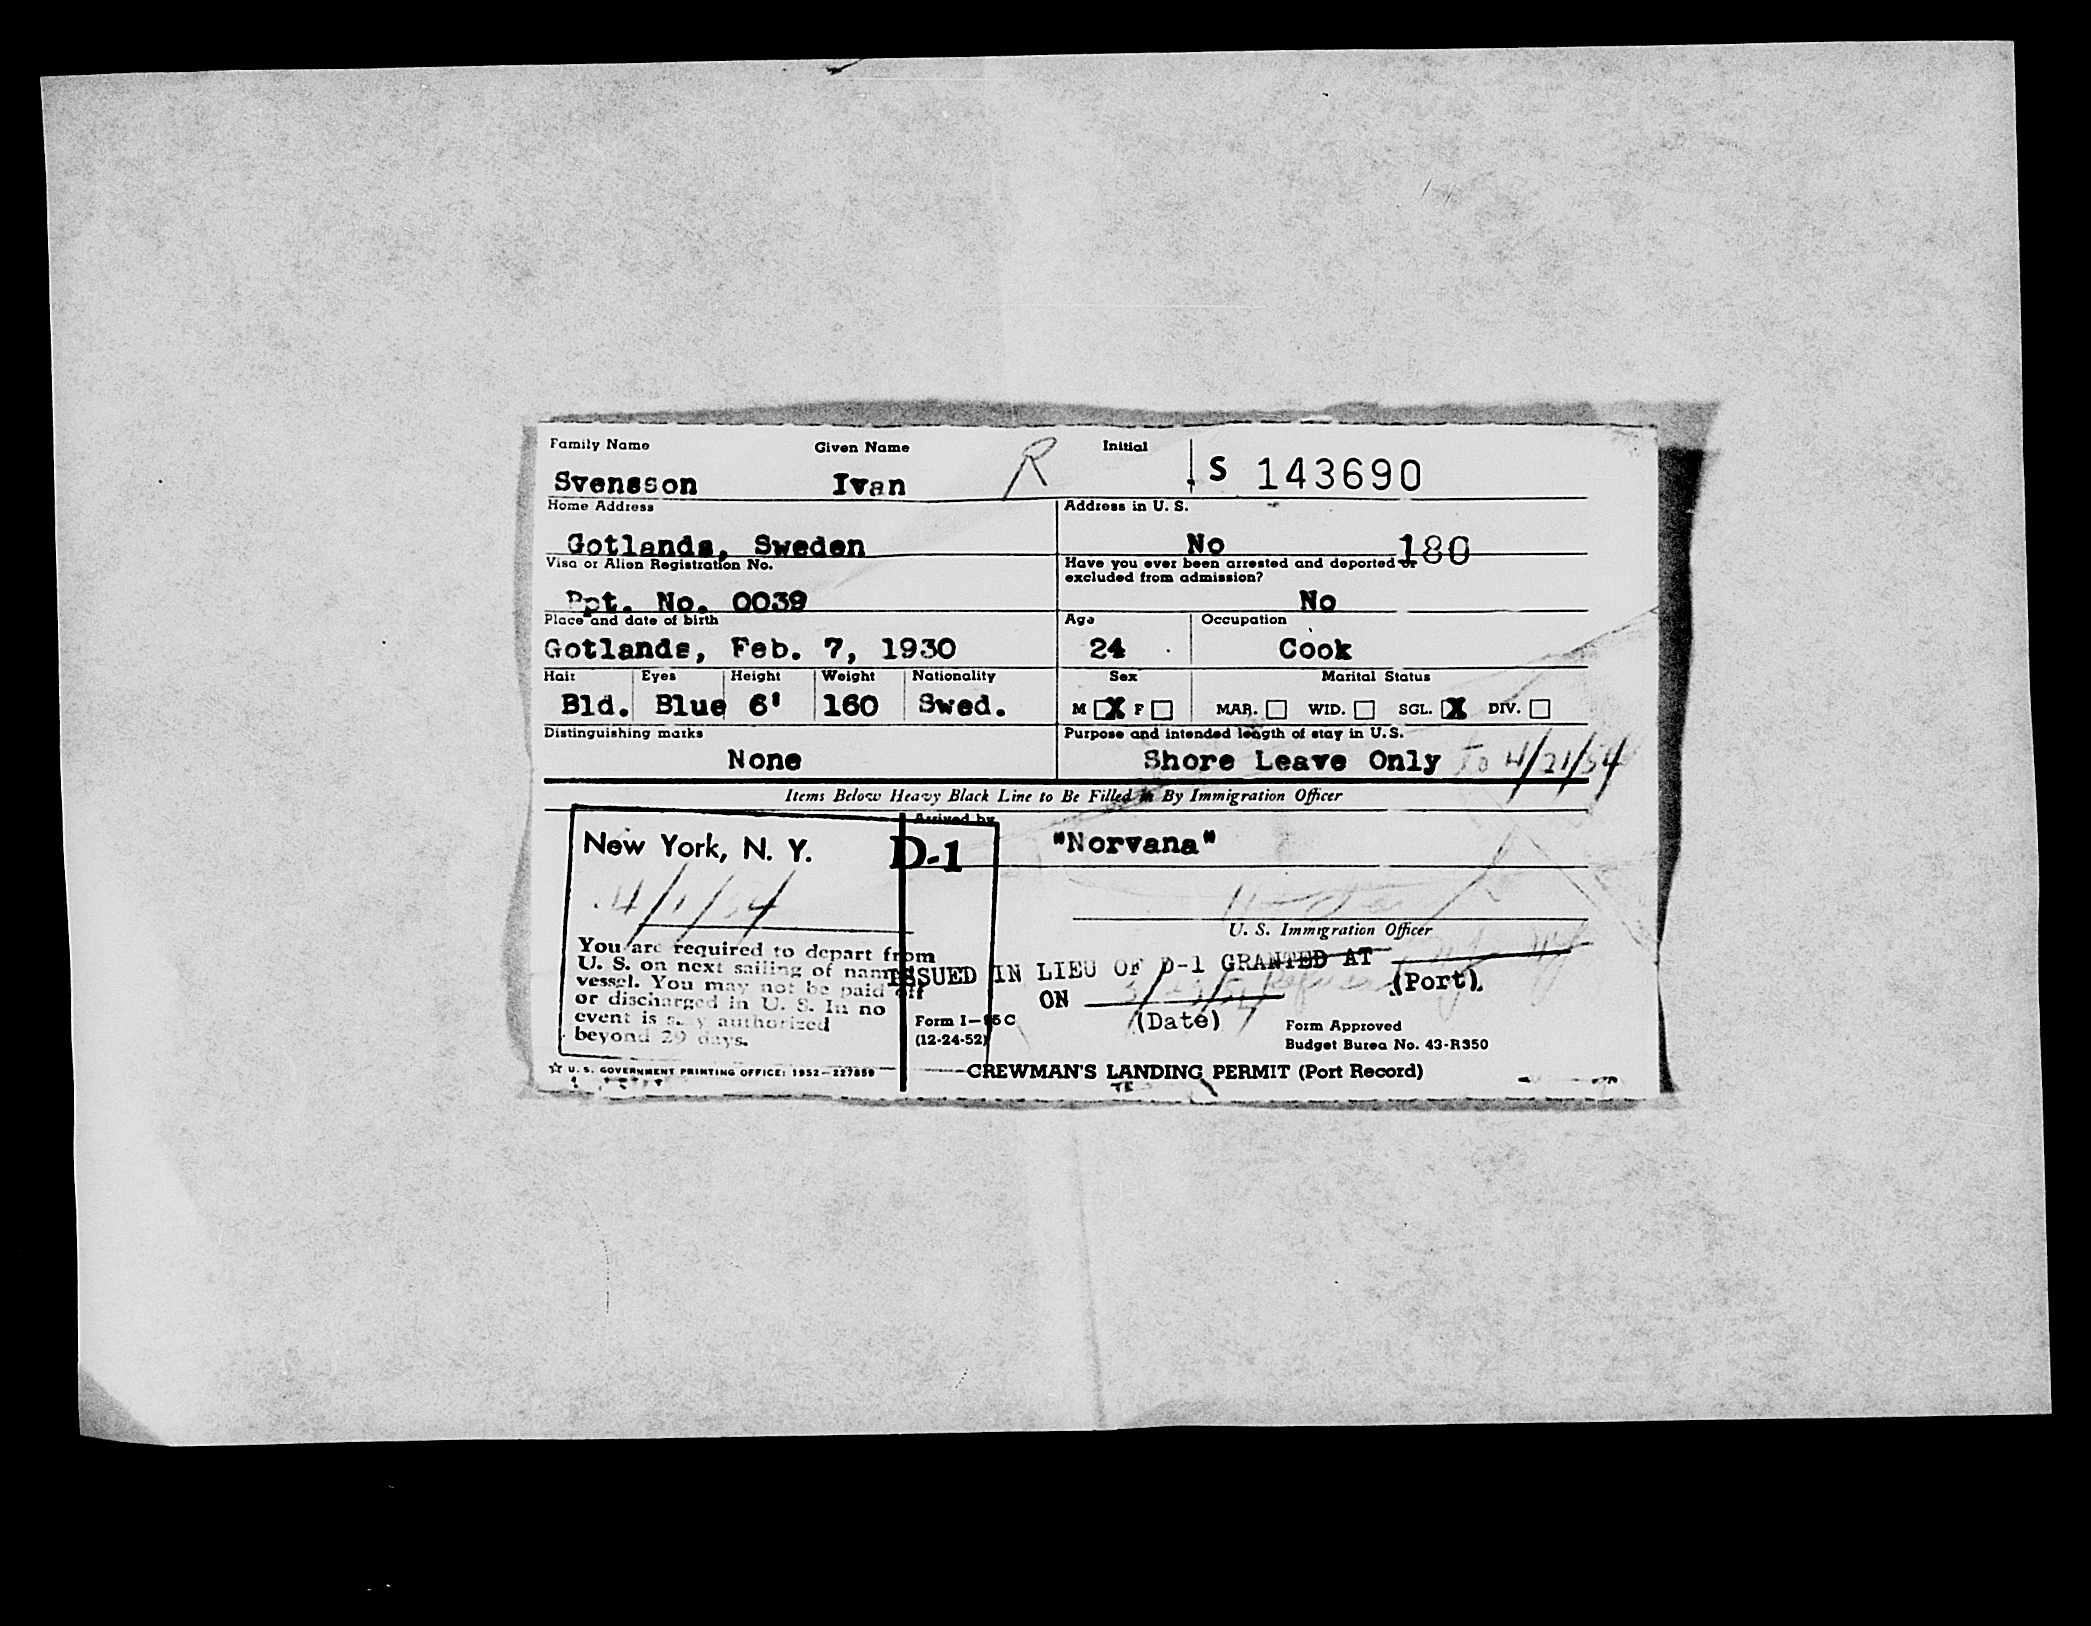 Family Name Given Name Initial
Svensson Ivan R S 143690
Home Address Address in U. S.
Gotlands, Sweden No 180
Visa or Alien Registration No. Have you ever been arrested and deported or
excluded from admission?
Ppt. No. 0039 No
Place and date of birth Age Occupation
Gotlands, Feb. 7, 1930 24 Cook
Hair Eyes Height Weight Nationality Sex Marital Status
Bld. Blue 6' 160 Swed. M X F MAR. WID. SGL. X DIV.
Distinguishing marks Purpose and intended length of stay in U. S.
None Shore Leave Only To 4/21/54
Items Below Heavy Black Line to Be Filled in By Immigration Officer
Arrived by
New York, N. Y. D-1 "Norvana"
4/1/54
U. S. Immigration Officer
You are required to depart from
U. S. on next sailing of named
vessel. You may not be paid off
or discharged in U. S. In no
event is stay authorized
beyond 29 days.
ISSUED IN LIEU OF D-1 GRANTED AT
(Port)
ON
(Date)
Form I-95C
(12-24-52)
Form Approved
Budget Burea No. 43-R350
☆ U. S. GOVERNMENT PRINTING OFFICE: 1952—227859
CREWMAN'S LANDING PERMIT (Port Record)